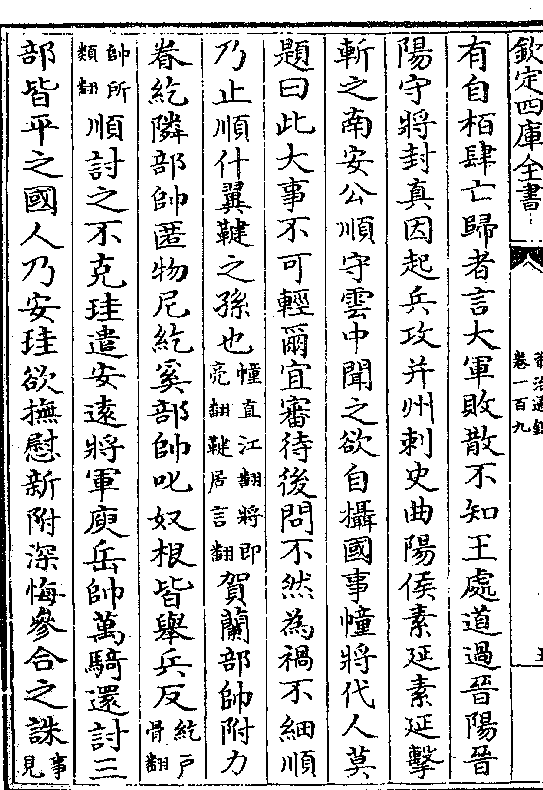 欽定四庫全書
資治通鑑
卷一百九
五
有自栢肆亡歸者言大軍敗散不知王處道過晉陽晉
陽守將封真因起兵攻并州刺史曲陽侯素延素延擊
斬之南安公順守雲中聞之欲自攝國事幢將代人莫
題曰此大事不可輕爾宜審待後問不然為禍不細順
乃止順什翼鞬之孫也幢直江翻將即亮翻鞬居言翻賀蘭部帥附力
眷紇隣部帥匿物尼紇奚部帥叱奴根皆舉兵反紇戸骨翻
帥所類翻順討之不克珪遣安遠將軍庾岳帥萬騎還討三
部皆平之國人乃安珪欲撫慰新附深悔參合之誅事見